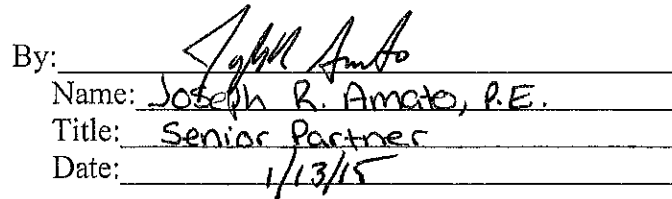 By:
Name: Joseph R. Amato, P.E.
Title: Senior Partner
Date: 1/13/15